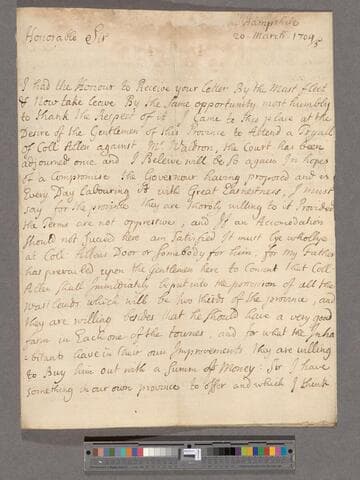 Hampshire
Honorable Sir
20 March 1704/5
I had the Honour to Receive your Letter By the Mast fleet
& Now take leave By the Same opportunity most humbly
to thank the Respect of it. I Came to this place at the
Desire of the Gentlemen of this Province to Attend a Tryall
of Coll Allen against Mr Waldron, the Court has been
adjourned once and I Beleive will be so again In hopes
of a Compromise the Governour having proposed and is
Every Day Labouring it with Great Earnestness, I must
say for the province they are thoroly willing to it Provided
the Terms are not oppressive, and If an Accomodation
Should not Succeed here am Satisfied It must lye wholly
at Coll Allens Door or Somebody for him, for My Father
has prevailed upon the Gentlemen here to Consent that Coll
Allen shall Immidiately be put into the possession of all the
wast lands which will be two thirds of the province, and
they are willing besides that he should have a very good
farm in Each one of the townes, and for what the Inha
bitants have in their own Improvements they are willing
to Buy him out with a Summ of Money: Sir I have
something in our own province to offer and which I think